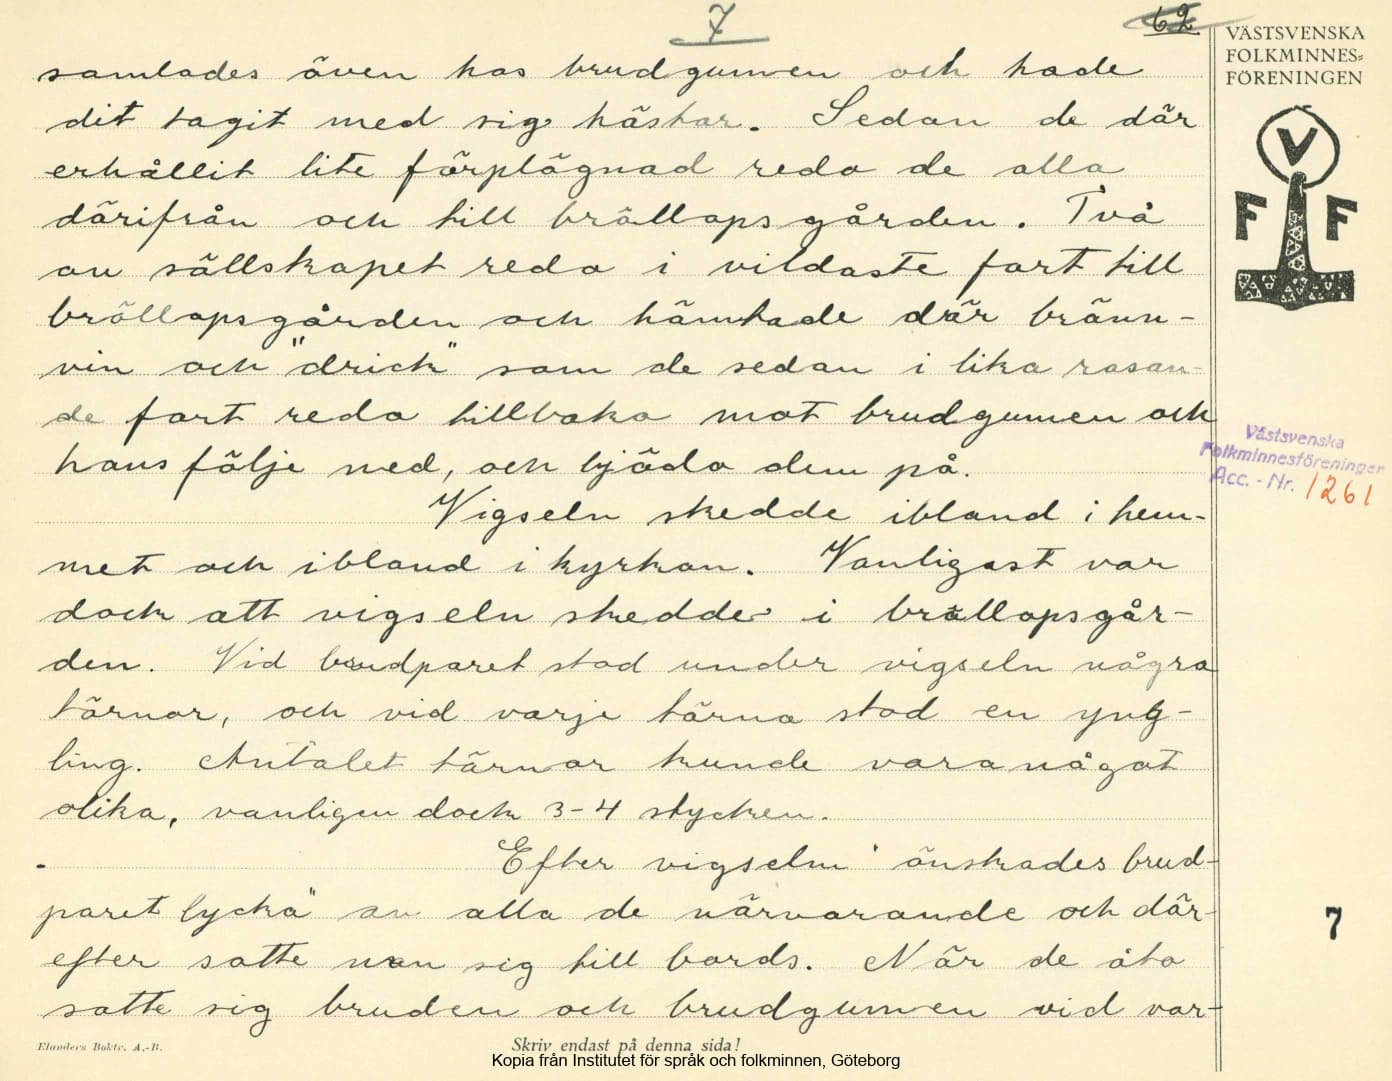 7
62
VÄSTSVENSKA
FOLKMINNES=
FÖRENINGEN
V
F F
samlades även hos brudgummen och hade
dit tagit med sig hästar. Sedan de där
erhållit lite förplägnad redo de alla
därifrån och till bröllopsgården. Två
av sällskapet redo i vildaste fart till
bröllopsgården och hämtade där bränn-
vin och "drick" som de sedan i lika rasan-
de fart redo tillbaka mot brudgummen och
hans följe med, och bjödo dem på.
Vigseln skedde ibland i hem-
met och ibland i kyrkan. Vanligast var
dock att vigseln skedde i bröllopsgår-
den. Vid brudparet stod under vigseln några
tärnor, och vid varje tärna stod en yng-
ling. Antalet tärnor kunde vara något
olika, vanligen dock 3-4 stycken.
Efter vigseln önskades brud-
paret lycka" av alla de närvarande och där-
efter satte man sig till bords. När de åto
satte sig bruden och brudgummen vid var-
Västsvenska
Folkminnesföreningen
Acc. - Nr. 1261
7
Elanders Boktr. A.-B.
Skriv endast på denna sida!
Kopia från Institutet för språk och folkminnen, Göteborg